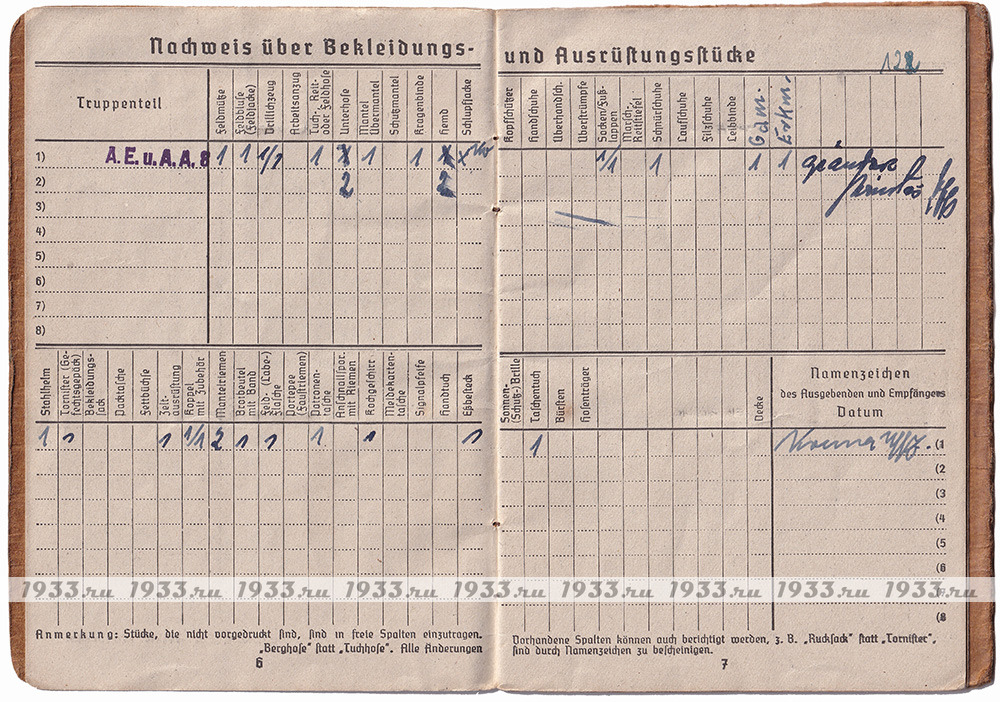 Nachweis über Bekleidungs- und Ausrüstungsstücke
122
Truppenteil
Feldmütze
Feldbluse (Feldjacke)
Drillichzeug
Arbeitsanzug
Tuch-, Reit- oder Feldhose
Unterhose
Mantel Übermantel
Schutzmantel
Kragenbinde
Hemd
Schlupfjacke
Kopfschützer
Handschuhe
Überhandsch.
Überstrümpfe
Socken/Fußlappen
Marsch- Reitstiefel
Schnürschuhe
Laufschuhe
Filzschuhe
Leibbinde
Gam.
Erkm.
1) A.E.u.A.A.8 1 1 1/1 1 x 1 1 x x 1/1 1 1 1
2) 2 2
3)
4)
5)
6)
7)
8)
Stahlhelm
Tornister (Gefechtsgepäck)
Bekleidungssack
Packtasche
Zeltbüchse
Zeltausrüstung
Koppel mit Zubehör
Mantelriemen
Brotbeutel mit Band
Feld- (Labe-) flasche
Portepee (Faustriemen)
Patronentasche
Anschnallspor. mit Riemen
Kochgeschirr
Meldekartentasche
Signalpfeife
Handtuch
Eßbesteck
Sonnen- (Schutz-) Brille
Taschentuch
Bürsten
Hosenträger
Decke
Namenzeichen
des Ausgebenden und Empfängers
Datum
1 1 1 1/1 2 1 1 1 1 1 1 (1
(2
(3
(4
(5
(6
(8
1933.ru 1933.ru 1933.ru 1933.ru 1933.ru 1933.ru 1933.ru 1933.ru 1933.ru
Anmerkung: Stücke, die nicht vorgedruckt sind, sind in freie Spalten einzutragen.
„Berghose" statt „Tuchhose". Alle Änderungen
6
Vorhandene Spalten können auch berichtigt werden, z. B. „Rucksack" statt „Tornister",
sind durch Namenzeichen zu bescheinigen.
7